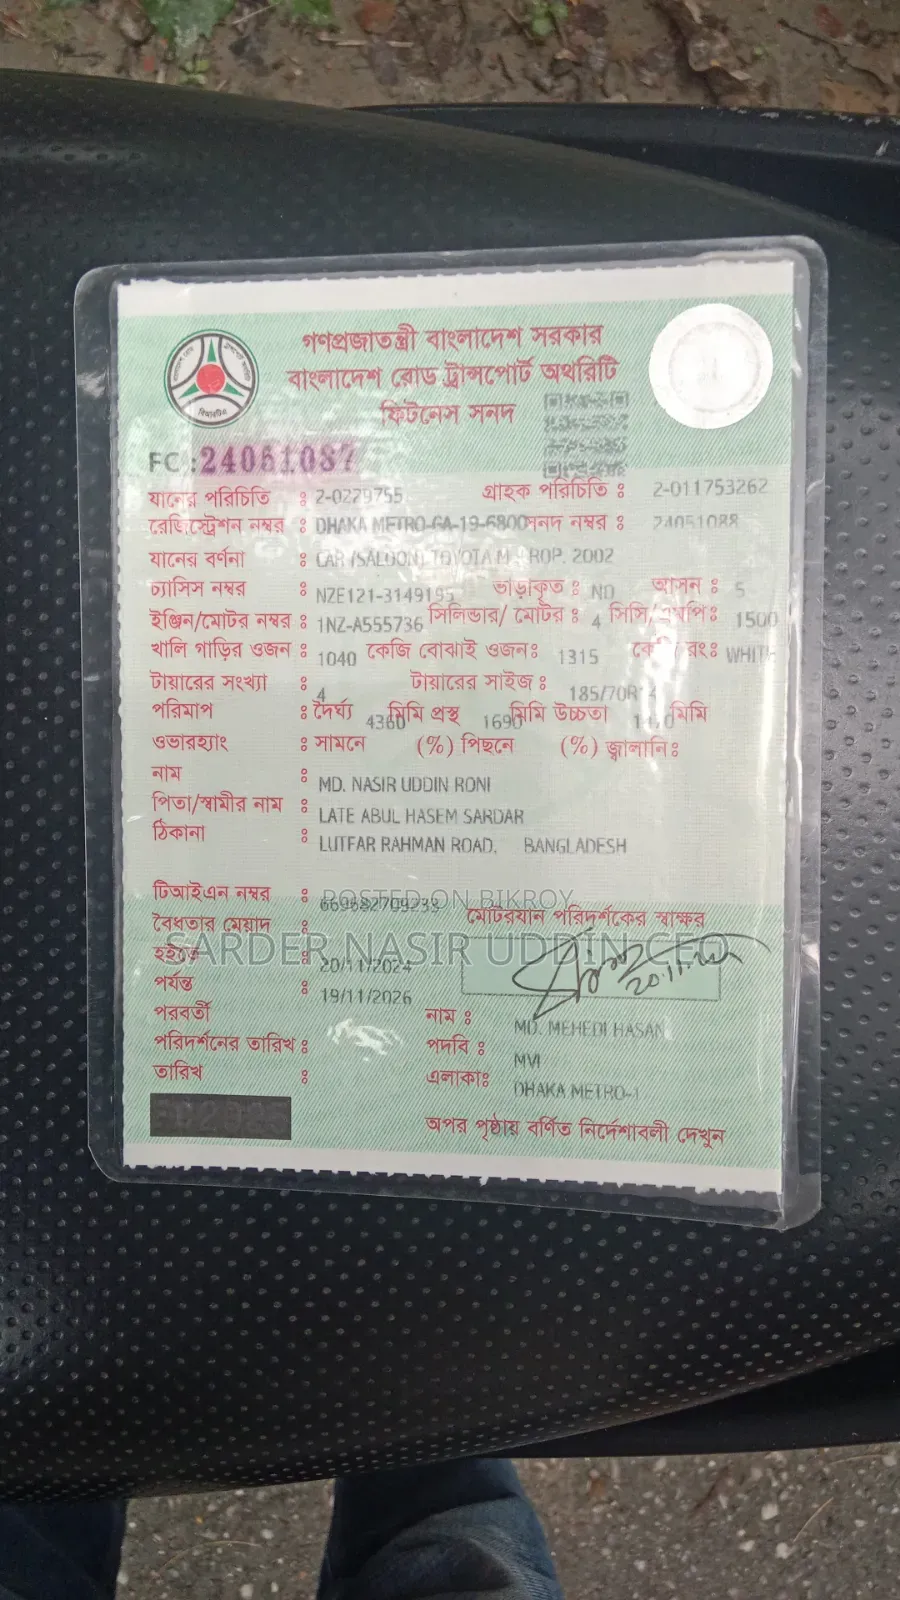 গণপ্রজাতন্ত্রী বাংলাদেশ সরকার
বাংলাদেশ রোড ট্রান্সপোর্ট অথরিটি
ফিটনেস সনদ
বিআরটিএ
FC : 24051087
যানের পরিচিতি : 2-0229755 গ্রাহক পরিচিতি : 2-011753262
রেজিস্ট্রেশন নম্বর : DHAKA METRO-GA-19-6800 সনদ নম্বর : 24051088
যানের বর্ণনা : CAR (SALOON) TOYOTA 2002
চ্যাসিস নম্বর : NZE121-3149195 ভাড়াকৃত : NO আসন : 5
ইঞ্জিন/মোটর নম্বর : 1NZ-A555736 সিলিন্ডার/ মোটর : 4 সিসি/ 1500
খালি গাড়ির ওজন : 1040 কেজি বোঝাই ওজন: 1315 রং: WHITE
টায়ারের সংখ্যা : 4 টায়ারের সাইজ : 185/70R
পরিমাপ : দৈর্ঘ্য 4360 মিমি প্রস্থ 1690 মিমি উচ্চতা মিমি
ওভারহ্যাং : সামনে (%) পিছনে (%) জ্বালানি:
নাম : MD. NASIR UDDIN RONI
পিতা/স্বামীর নাম : LATE ABUL HASEM SARDAR
ঠিকানা : LUTFAR RAHMAN ROAD, BANGLADESH
টিআইএন নম্বর : 669682709239
POSTED ON BIKROY
বৈধতার মেয়াদ : মোটরযান পরিদর্শকের স্বাক্ষর
SARDER NASIR UDDIN CEO
হইতে : 20/11/2024
20.11.
পর্যন্ত : 19/11/2026
পরবর্তী নাম : MD. MEHEDI HASAN
পরিদর্শনের তারিখ : পদবি : MVI
তারিখ : এলাকা: DHAKA METRO-1
অপর পৃষ্ঠায় বর্ণিত নির্দেশাবলী দেখুন